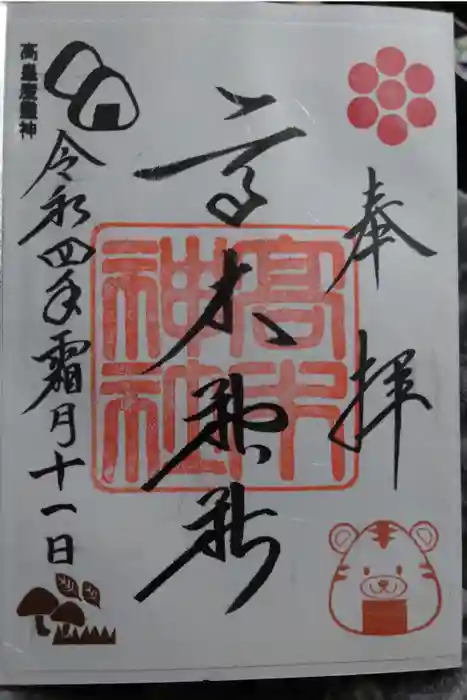 奉拝
高木神社
高木神社
令和四年霜月十一日
高皇産靈神